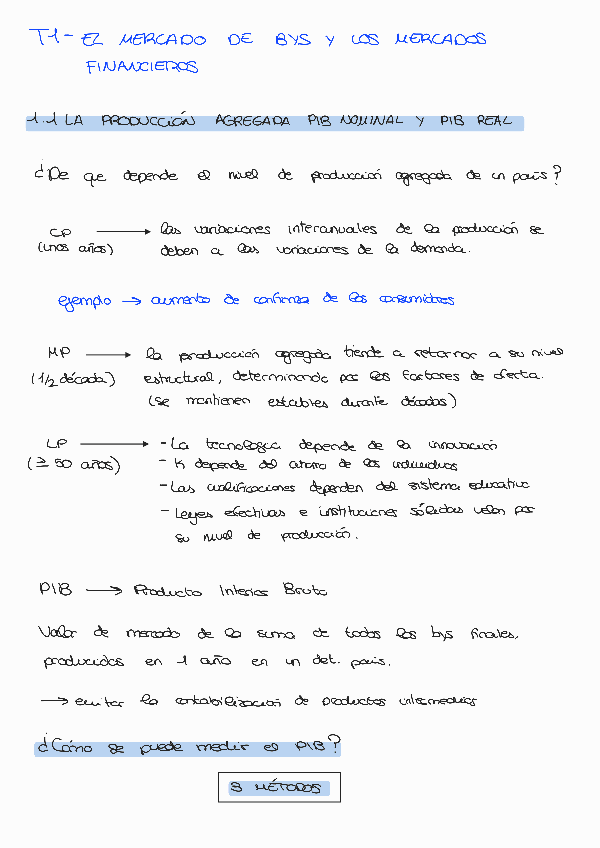 T1- EL MERCADO DE BYS Y LOS MERCADOS
FINANCIEROS
1.1 LA PRODUCCIÓN AGREGADA PIB NOMINAL Y PIB REAL
¿De que depende el nivel de producción agregada de un país?
CP → las variaciones interanuales de la producción se
(unos años) deben a las variaciones de la demanda.
ejemplo → aumento de confianza de los consumidores
MP → la producción agregada tiende a retornar a su nivel
(1/2 década) estructural, determinando por los factores de oferta.
(se mantienen estables durante décadas)
LP → - La tecnología depende de la innovación
(≥ 50 años) - K depende del ahorro de los individuos
- Las cualificaciones dependen del sistema educativo
- Leyes efectivas e instituciones sólidas velan por
su nivel de producción.
PIB → Producto Interior Bruto
Valor de mercado de la suma de todos los bys finales,
producidos en 1 año en un det. país.
→ evitar la contabilización de productos intermedios
¿Cómo se puede medir el PIB?
3 MÉTODOS